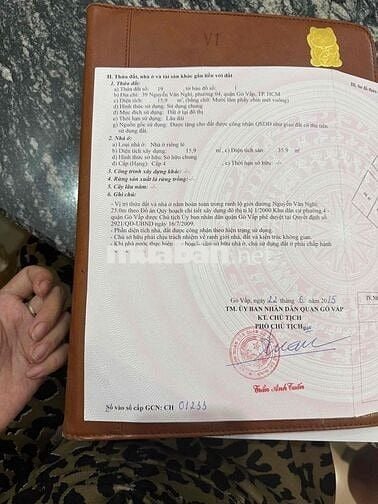 VI
II. Thửa đất, nhà ở và tài sản khác gắn liền với đất
1. Thửa đất:
a) Thửa đất số: 19 , tờ bản đồ số: 1
b) Địa chỉ: 39 Nguyễn Văn Nghi, phường 04, quận Gò Vấp, TP. HCM
c) Diện tích: 15,9 m², (bằng chữ: Mười lăm phẩy chín mét vuông)
d) Hình thức sử dụng: Sử dụng chung
đ) Mục đích sử dụng: Đất ở tại đô thị
e) Thời hạn sử dụng: Lâu dài
g) Nguồn gốc sử dụng: Được tặng cho đất được công nhận QSDĐ như giao đất có thu tiền
sử dụng đất.
2. Nhà ở:
a) Loại nhà ở : Nhà ở riêng lẻ
b) Diện tích xây dựng: 15,9 m² , c) Diện tích sàn: 35,9 m²
d) Hình thức sở hữu: Sở hữu chung
đ) Cấp (Hạng): Cấp 4 , e) Thời hạn sở hữu: -/-
3. Công trình xây dựng khác: -/-
4. Rừng sản xuất là rừng trồng: -/-
5. Cây lâu năm: -/-
6. Ghi chú:
- Vị trí thửa đất và nhà ở nằm hoàn toàn trong ranh lộ giới đường Nguyễn Văn Nghi,
25,0m theo Đồ án Quy hoạch chi tiết xây dựng đô thị tỉ lệ 1/2000 Khu dân cư phường 4 -
quận Gò Vấp được Chủ tịch Ủy ban nhân dân quận Gò Vấp phê duyệt tại Quyết định số
2921/QĐ-UBND ngày 16/7/2009.
- Diện tích nhà, đất được công nhận theo hiện trạng sử dụng.
- Chủ sở hữu phải chịu trách nhiệm về ranh giới nhà, đất và kiến trúc không gian.
- Khi nhà nước thực hiện hoạch sở hữu nhà ở, chủ sử dụng đất ở phải chấp hành
muaban.net
Gò Vấp, ngày 22 tháng 6 năm 2015
TM. ỦY BAN NHÂN DÂN QUẬN GÒ VẤP
KT. CHỦ TỊCH
PHÓ CHỦ TỊCH
Trần Anh Tuấn
Số vào sổ cấp GCN: CH 01233